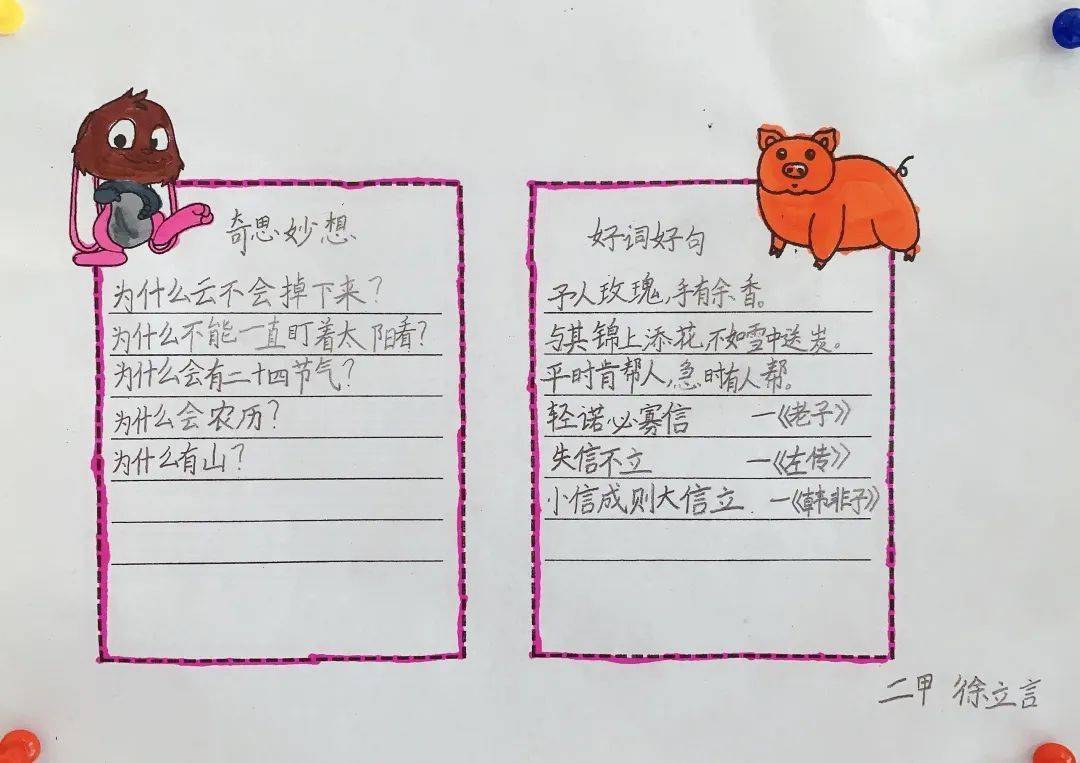 奇思妙想
为什么云不会掉下来？
为什么不能一直盯着太阳看？
为什么会有二十四节气？
为什么会农历？
为什么有山？
好词好句
予人玫瑰，手有余香。
与其锦上添花，不如雪中送炭。
平时肯帮人，急时有人帮。
轻诺必寡信 —《老子》
失信不立 —《左传》
小信成则大信立 —《韩非子》
二甲 徐立言